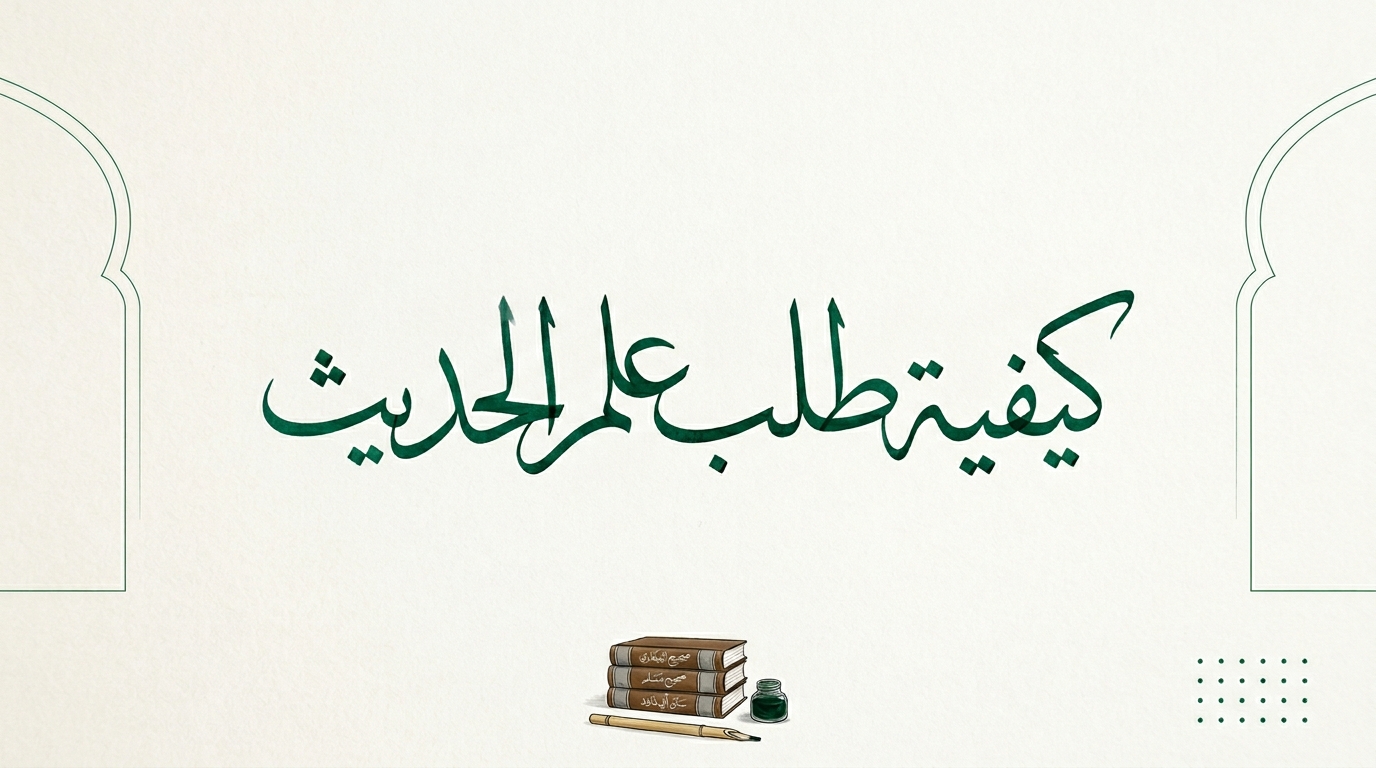 كيفية طلب علم الحديث
صحيح البخاري
صحيح مسلم
سنن أبي داود